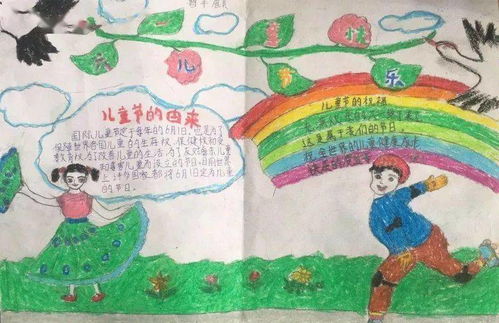 六一童快
儿节乐
儿童节的由来
国际儿童节定于每年的6月1日,也是为了
保障世界各国儿童的生存权、保健权和受
教育权,为了改善儿童的生活,为了反对虐杀儿童
和毒害儿童而设立的节日。目前世界
上许多国家都将6月1日定为儿童
的节日。
儿童节的祝福
这是属于我们的节日
祝全世界的儿童健康成长
快乐